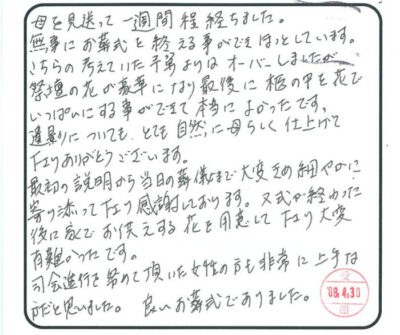 母を見送って一週間程経ちました。
無事にお葬式を終える事ができほっとしています。
こちらの考えていた予算よりはオーバーしましたが
祭壇の花が豪華になり最後に柩の中を花で
いっぱいにする事ができて本当によかったです。
遺影についても、とても自然に母らしく仕上げて
下さりありがとうございます。
最初の説明から当日の葬儀まで大変きめ細やかに
寄り添って下さり感謝しております。又式が終わった
後に家でお供えする花を用意して下さり大変
有難かったです。
司会進行を努めて頂いた女性の方も非常に上手な
方だと思いました。良いお葬式でありました。
受
'08.4.30